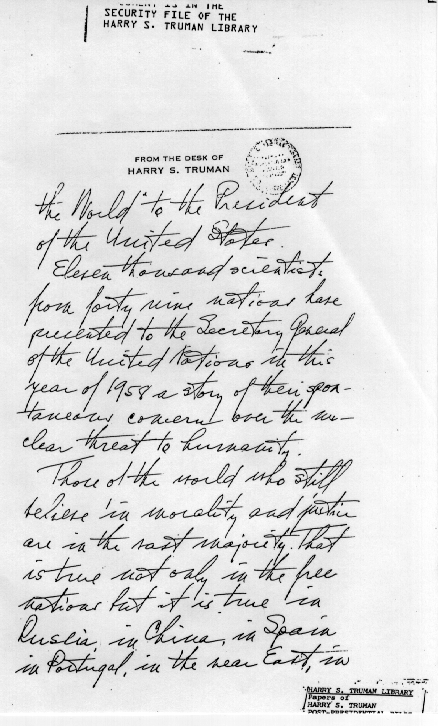 IS IN THE
SECURITY FILE OF THE
HARRY S. TRUMAN LIBRARY
FROM THE DESK OF
HARRY S. TRUMAN
the World" to the President
of the United States.
Eleven thousand scientists
from forty nine nations have
presented to the Secretary General
of the United Nations in this
year of 1958 a story of their spon-
taneous concern over the nu-
clear threat to humanity.
Those of the world who still
believe in morality and justice
are in the vast majority. That
is true not only in the free
nations but it is true in
Russia, in China, in Spain
in Portugal, in the near East, in
HARRY S. TRUMAN LIBRARY
Papers of
HARRY S. TRUMAN
POST-PRESIDENTIAL